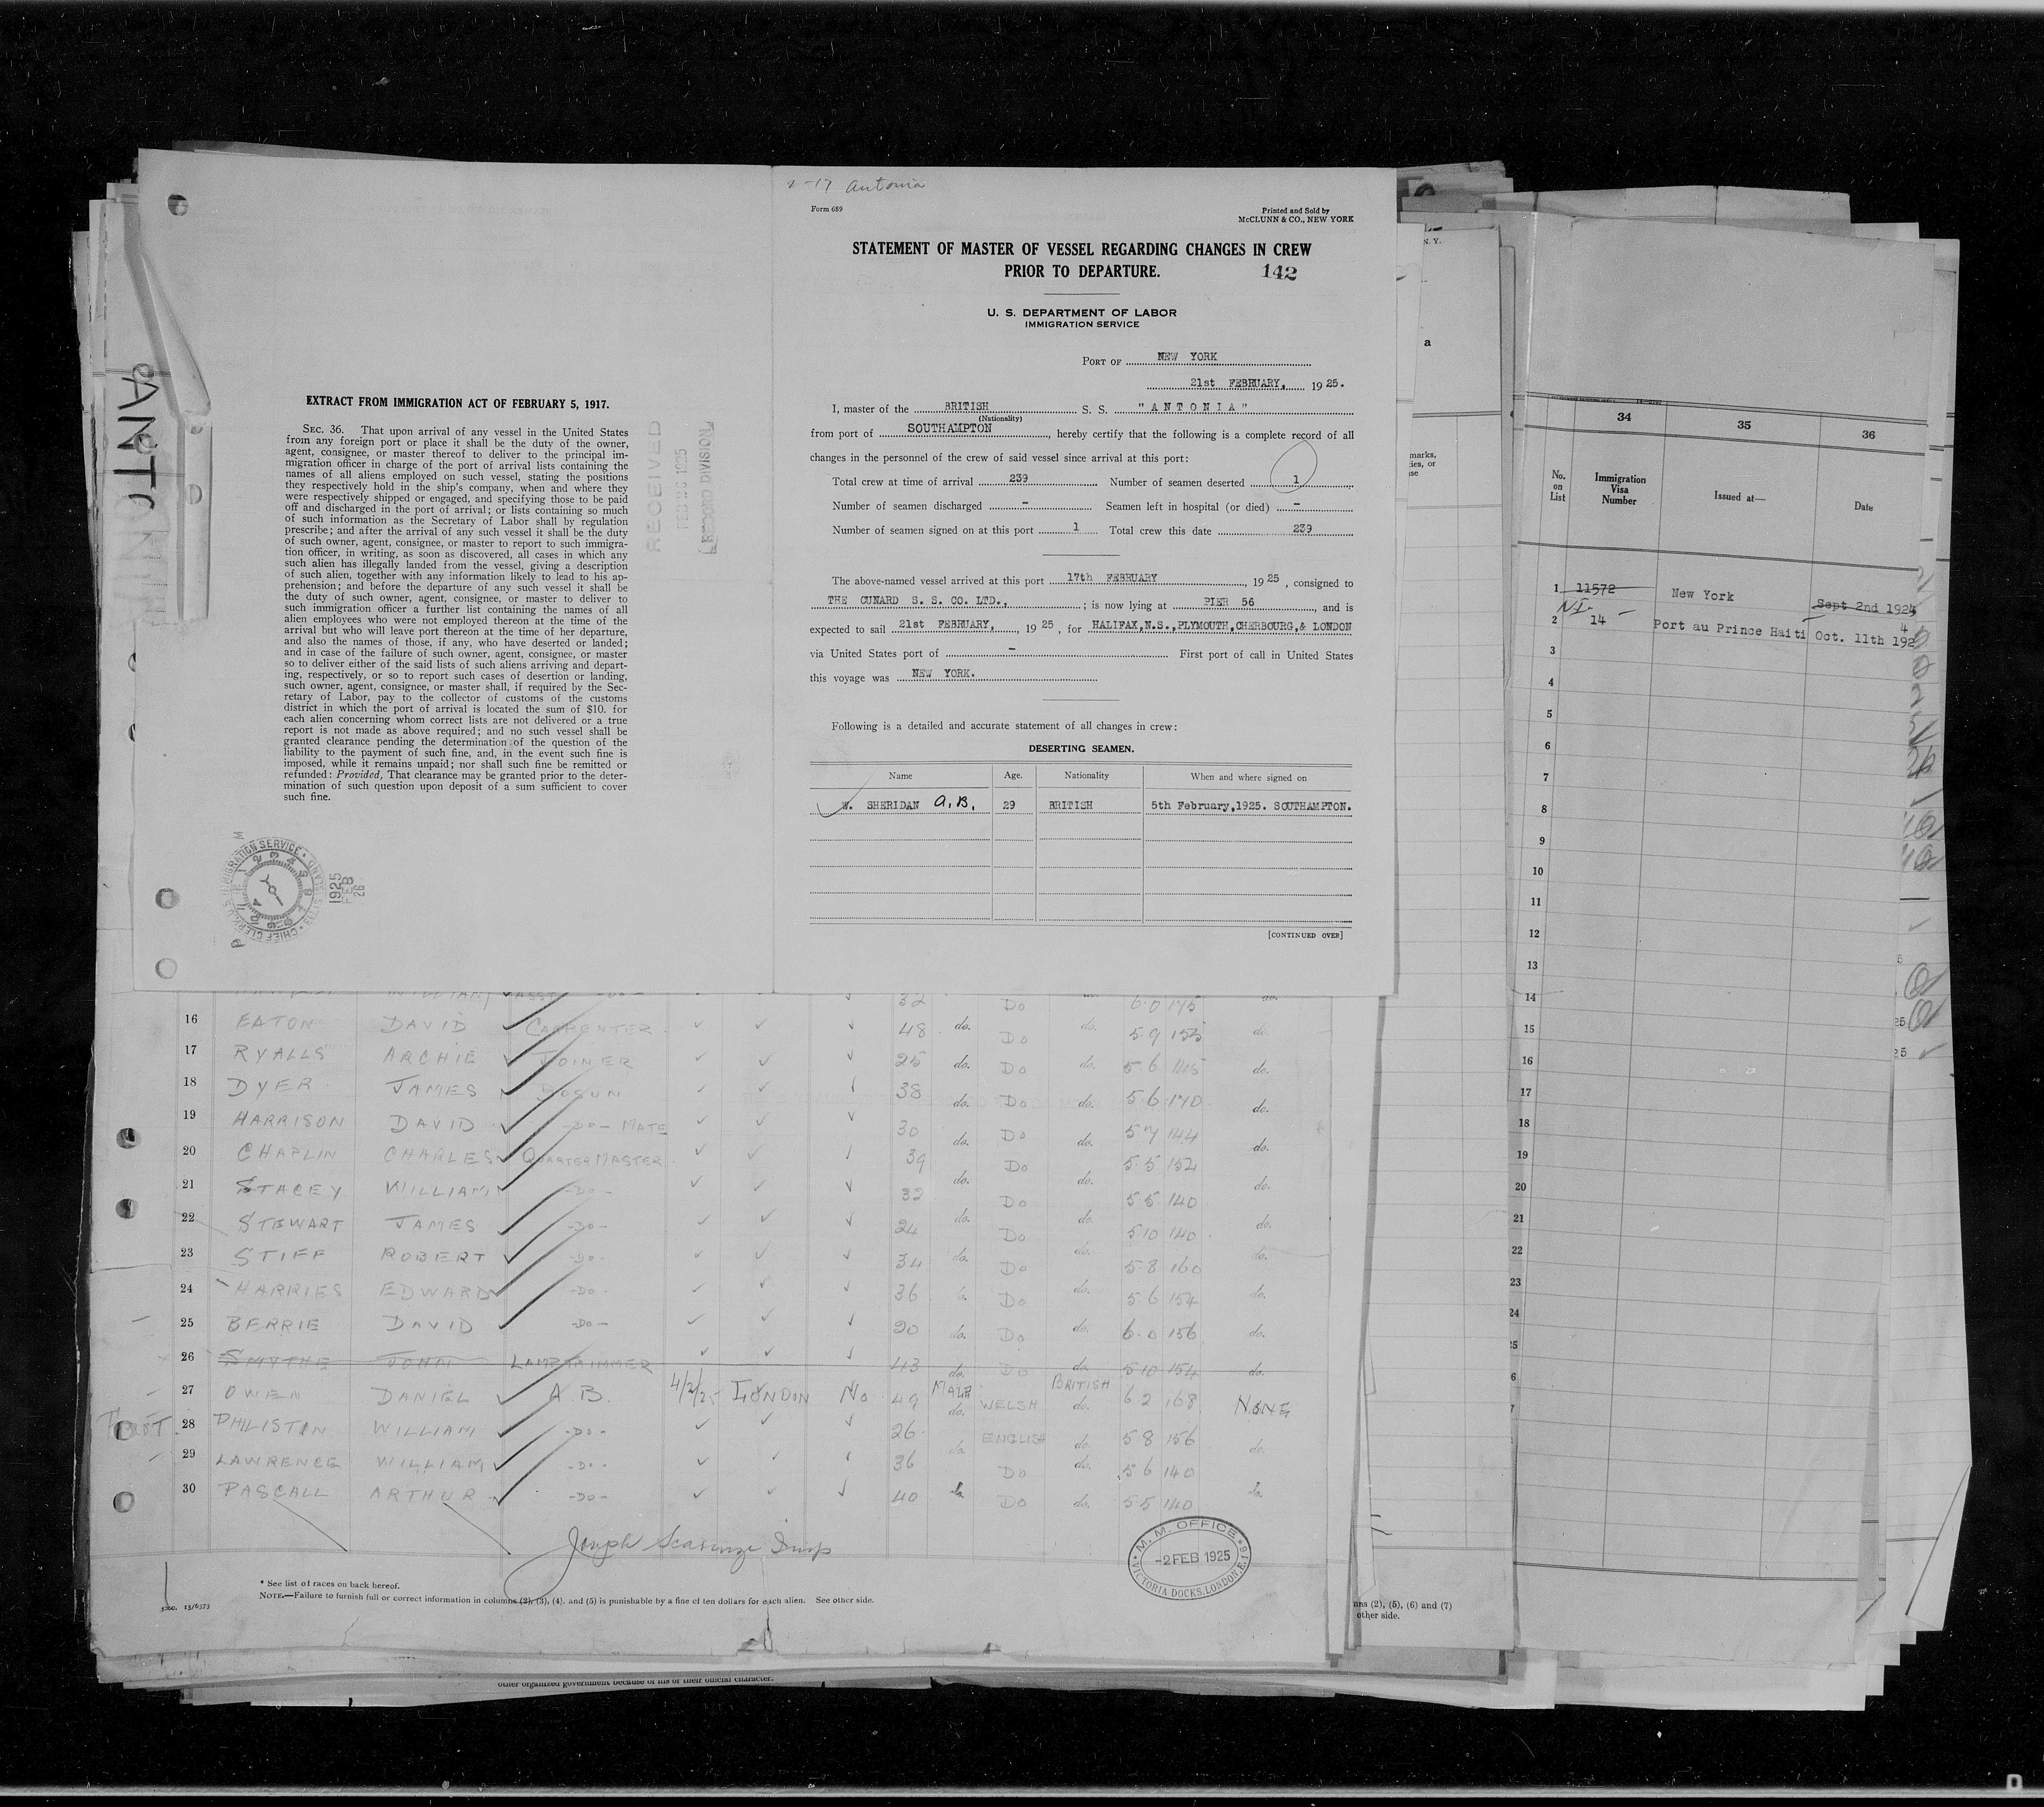 2-17 Antonia
Form 689
Printed and Sold by
McCLUNN & CO., NEW YORK
STATEMENT OF MASTER OF VESSEL REGARDING CHANGES IN CREW
PRIOR TO DEPARTURE.
142
U. S. DEPARTMENT OF LABOR
IMMIGRATION SERVICE
PORT OF NEW YORK
21st FEBRUARY, 1925.
I, master of the BRITISH S. S. "ANTONIA"
(Nationality)
from port of SOUTHAMPTON, hereby certify that the following is a complete record of all
changes in the personnel of the crew of said vessel since arrival at this port:
Total crew at time of arrival 239 Number of seamen deserted 1
Number of seamen discharged - Seamen left in hospital (or died) -
Number of seamen signed on at this port 1 Total crew this date 239
The above-named vessel arrived at this port 17th FEBRUARY, 1925, consigned to
THE CUNARD S. S. CO. LTD., ; is now lying at PIER 56, and is
expected to sail 21st FEBRUARY, 1925, for HALIFAX,N.S.,PLYMOUTH,CHERBOURG,& LONDON
via United States port of - First port of call in United States
this voyage was NEW YORK.
Following is a detailed and accurate statement of all changes in crew:
DESERTING SEAMEN.
Name Age. Nationality When and where signed on
W. SHERIDAN A.B. 29 BRITISH 5th February,1925. SOUTHAMPTON.
[CONTINUED OVER]
EXTRACT FROM IMMIGRATION ACT OF FEBRUARY 5, 1917.
SEC. 36. That upon arrival of any vessel in the United States
from any foreign port or place it shall be the duty of the owner,
agent, consignee, or master thereof to deliver to the principal im-
migration officer in charge of the port of arrival lists containing the
names of all aliens employed on such vessel, stating the positions
they respectively hold in the ship's company, when and where they
were respectively shipped or engaged, and specifying those to be paid
off and discharged in the port of arrival; or lists containing so much
of such information as the Secretary of Labor shall by regulation
prescribe; and after the arrival of any such vessel it shall be the duty
of such owner, agent, consignee, or master to report to such immigra-
tion officer, in writing, as soon as discovered, all cases in which any
such alien has illegally landed from the vessel, giving a description
of such alien, together with any information likely to lead to his ap-
prehension; and before the departure of any such vessel it shall be
the duty of such owner, agent, consignee, or master to deliver to
such immigration officer a further list containing the names of all
alien employees who were not employed thereon at the time of the
arrival but who will leave port thereon at the time of her departure,
and also the names of those, if any, who have deserted or landed;
and in case of the failure of such owner, agent, consignee, or master
so to deliver either of the said lists of such aliens arriving and depart-
ing, respectively, or so to report such cases of desertion or landing,
such owner, agent, consignee, or master shall, if required by the Sec-
retary of Labor, pay to the collector of customs of the customs
district in which the port of arrival is located the sum of $10. for
each alien concerning whom correct lists are not delivered or a true
report is not made as above required; and no such vessel shall be
granted clearance pending the determination of the question of the
liability to the payment of such fine, and, in the event such fine is
imposed, while it remains unpaid; nor shall such fine be remitted or
refunded: Provided, That clearance may be granted prior to the deter-
mination of such question upon deposit of a sum sufficient to cover
such fine.
RECEIVED
FEB 26 1925
RECORD DIVISION
1925
FEB
26
16 EATON DAVID CARPENTER 48 do. Do do. 5 9 155 do.
17 RYALLS ARCHIE JOINER 25 do. Do do. 5 6 145 do.
18 DYER JAMES BOSUN 38 do. Do do. 5 6 170 do.
19 HARRISON DAVID -DO- MATE 30 do. Do do. 5 7 144 do.
20 CHAPLIN CHARLES QUARTERMASTER 39 do. Do do. 5 5 152 do.
21 STACEY WILLIAM -DO- 32 do. Do do. 5 5 140 do.
22 STEWART JAMES -DO- 24 do. Do do. 5 10 140 do.
23 STIFF ROBERT -DO- 34 do. Do do. 5 8 160 do.
24 HARRIES EDWARD -DO- 36 do. Do do. 5 6 154 do.
25 BERRIE DAVID -DO- 20 do. Do do. 6 0 156 do.
26 SMYTHE JOHN LAMPTRIMMER 43 do. Do do. 5 10 154 do.
27 OWEN DANIEL A.B. 4/2/25 LONDON No 49 MALE WELSH BRITISH 6 2 168 NONE
28 PHILISTIN WILLIAM -DO- 26 do. ENGLISH do. 5 8 156 do.
29 LAWRENCE WILLIAM -DO- 36 do. Do do. 5 6 140
30 PASCALL ARTHUR -DO- 40 do. Do do. 5 5 140 do.
M. M. OFFICE
-2 FEB 1925
VICTORIA DOCKS, LONDON, E.16
* See list of races on back hereof.
NOTE.—Failure to furnish full or correct information in columns (2), (3), (4), and (5) is punishable by a fine of ten dollars for each alien. See other side.
other organized government because of his or their official character.
nns (2), (5), (6) and (7)
other side.
N. Y.
a
marks,
ies, or
se
34 35 36
No. on List
Immigration Visa Number
Issued at—
Date
1 11572 New York Sept 2nd 1924
N.I.
2 14 Port au Prince Haiti Oct. 11th 1924
3
4
5
6
7
8
9
10
11
12
13
14
15
16
17
18
19
20
21
22
23
24
25